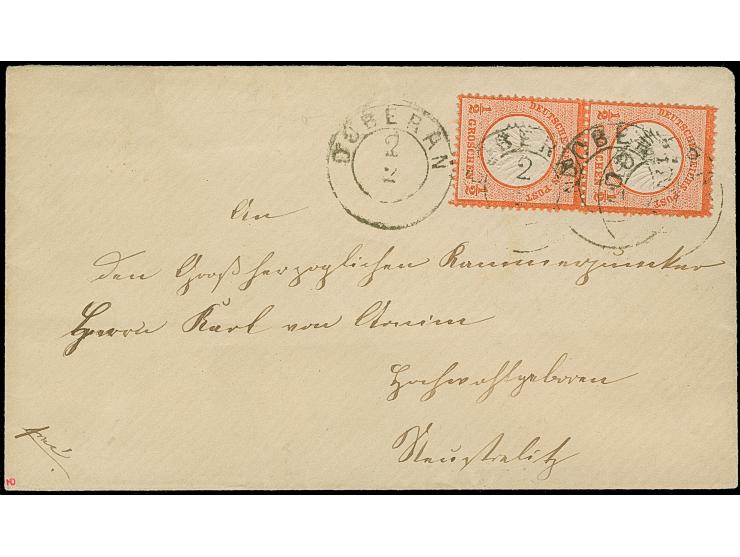 DOBERAN
2
½ GROSCHEN ½
DEUTSCHE REICHS-POST
½ GROSCHEN ½
DEUTSCHE REICHS-POST
DOBERAN
2
DOBERAN
An
den Großherzoglichen Kammerjunker
Herrn Karl von Arnim
Hochwohlgeboren
Neustrelitz